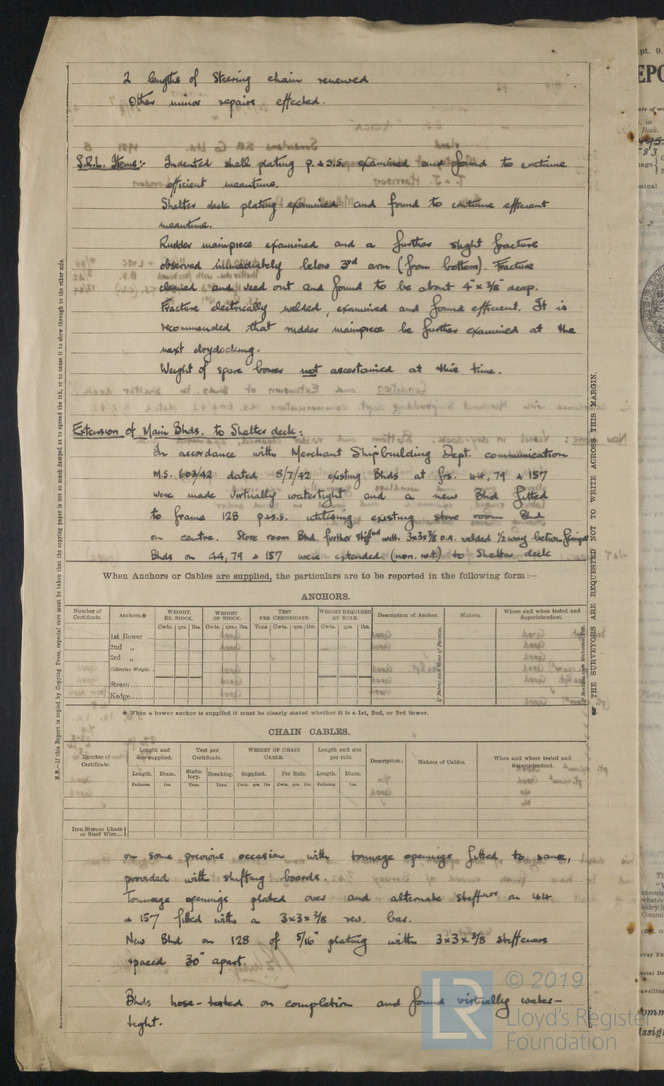 2 lengths of Steering chain renewed
Other minor repairs effected.
S.R.L. Items:- Indented shell plating p. & s.s. examined and found to continue
efficient meantime.
Shelter deck plating examined and found to continue efficient
meantime.
Rudder mainpiece examined and a further slight fracture
observed immediately below 3rd arm (from bottom). Fracture
cleaned and veed out and found to be about 4" x 3/8" deep.
Fracture electrically welded, examined and found efficient. It is
recommended that rudder mainpiece be further examined at the
next drydocking.
Weight of spare bower not ascertained at this time.
Extension of Main Bhds. to Shelter deck:
In accordance with Merchant Shipbuilding Dept. communication
M.S. 603/42 dated 8/7/42, existing Bhds at frs. 44, 79 & 157
were made virtually watertight and a new Bhd fitted
to frame 128 p & s.s. utilising existing store room Bhd
on centre. Store room Bhd. further stiffd with 3x3x3/8 o.a. welded 1/2 way between
Bhds on 44, 79 & 157 were extended (non. w.t.) to Shelter deck
When Anchors or Cables are supplied, the particulars are to be reported in the following form:—
ANCHORS.
Number of Certificate. Anchors.* WEIGHT, EX. STOCK. WEIGHT OF STOCK. TEST PER CERTIFICATE. WEIGHT REQUIRED BY RULE. Description of Anchor. Makers. Where and when tested and Superintendent.
Cwts. qrs. lbs. Cwts. qrs. lbs. Tons Cwts. qrs. lbs. Cwts. qrs. lbs.
1st Bower
2nd „
3rd „
Collective Weight.
Stream
Kedge
* When a bower anchor is supplied it must be clearly stated whether it is a 1st, 2nd, or 3rd bower.
CHAIN CABLES.
Number of Certificate. Length and size supplied. Test per Certificate. WEIGHT OF CHAIN CABLE. Length and size per rule. Description. Makers of Cables. When and where tested and Superintendent.
Length. Diam. Statutory. Breaking. Supplied. Per Rule. Length. Diam.
Fathoms. Ins. Tons. Tons. Cwts. qrs. lbs. Cwts. qrs. lbs. Fathoms. Ins.
Iron Stream Chain or Steel Wire
on some previous occasion with tonnage openings fitted to same,
provided with shifting boards.
Tonnage openings plated over and alternate stiffners on 44
& 157 fitted with a 3x3x3/8 rev. bar.
New Bhd on 128 of 5/16" plating with 3x3x3/8 stiffeners
spaced 30" apart.
Bhds hose-tested on completion and found virtually water-
tight.
N.B.—If this Report is copied by Copying Press, especial care must be taken that the copying paper is not so much damped as to spread the ink, or to cause it to show through to the other side.
THE SURVEYORS ARE REQUESTED NOT TO WRITE ACROSS THIS MARGIN.
© 2019
LR
Lloyd's Register
Foundation